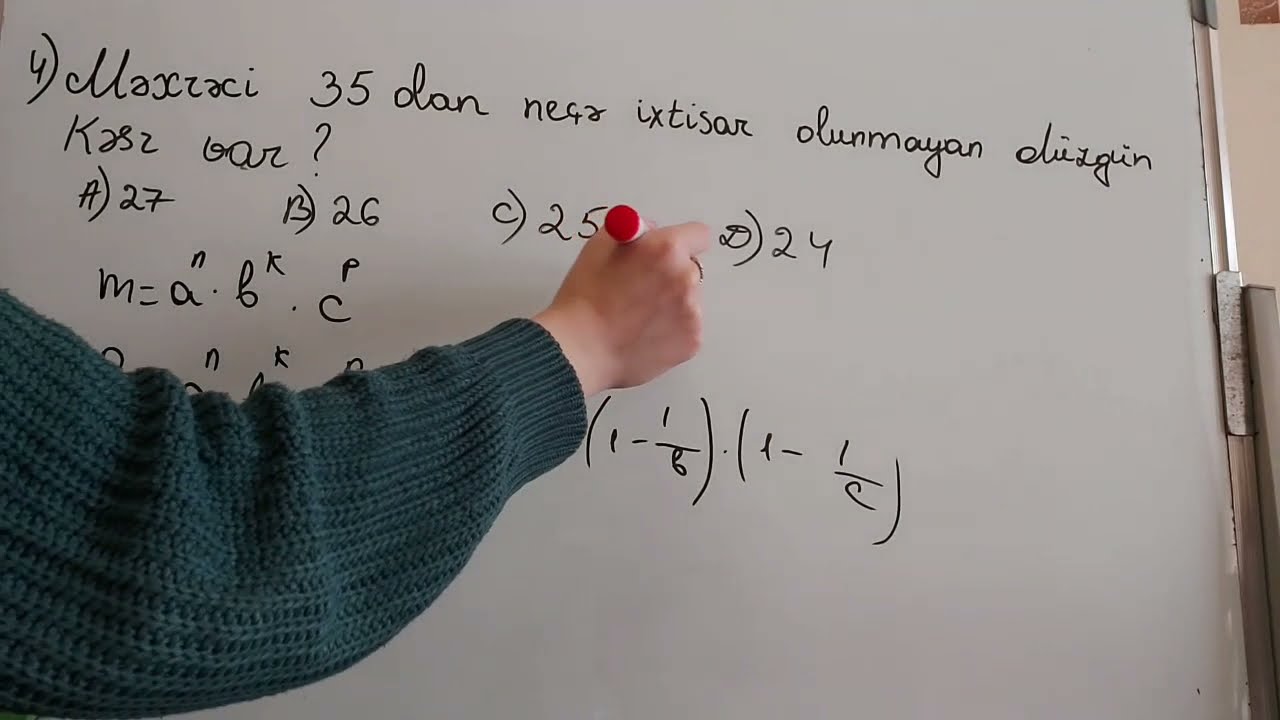 4) Məxrəci 35 dan neçə ixtisar olunmayan düzgün
Kəsr var?
A) 27 B) 26 C) 25 D) 24
m = aⁿ · bᵏ · cᵖ
n k
(1 - 1/b) · (1 - 1/c)